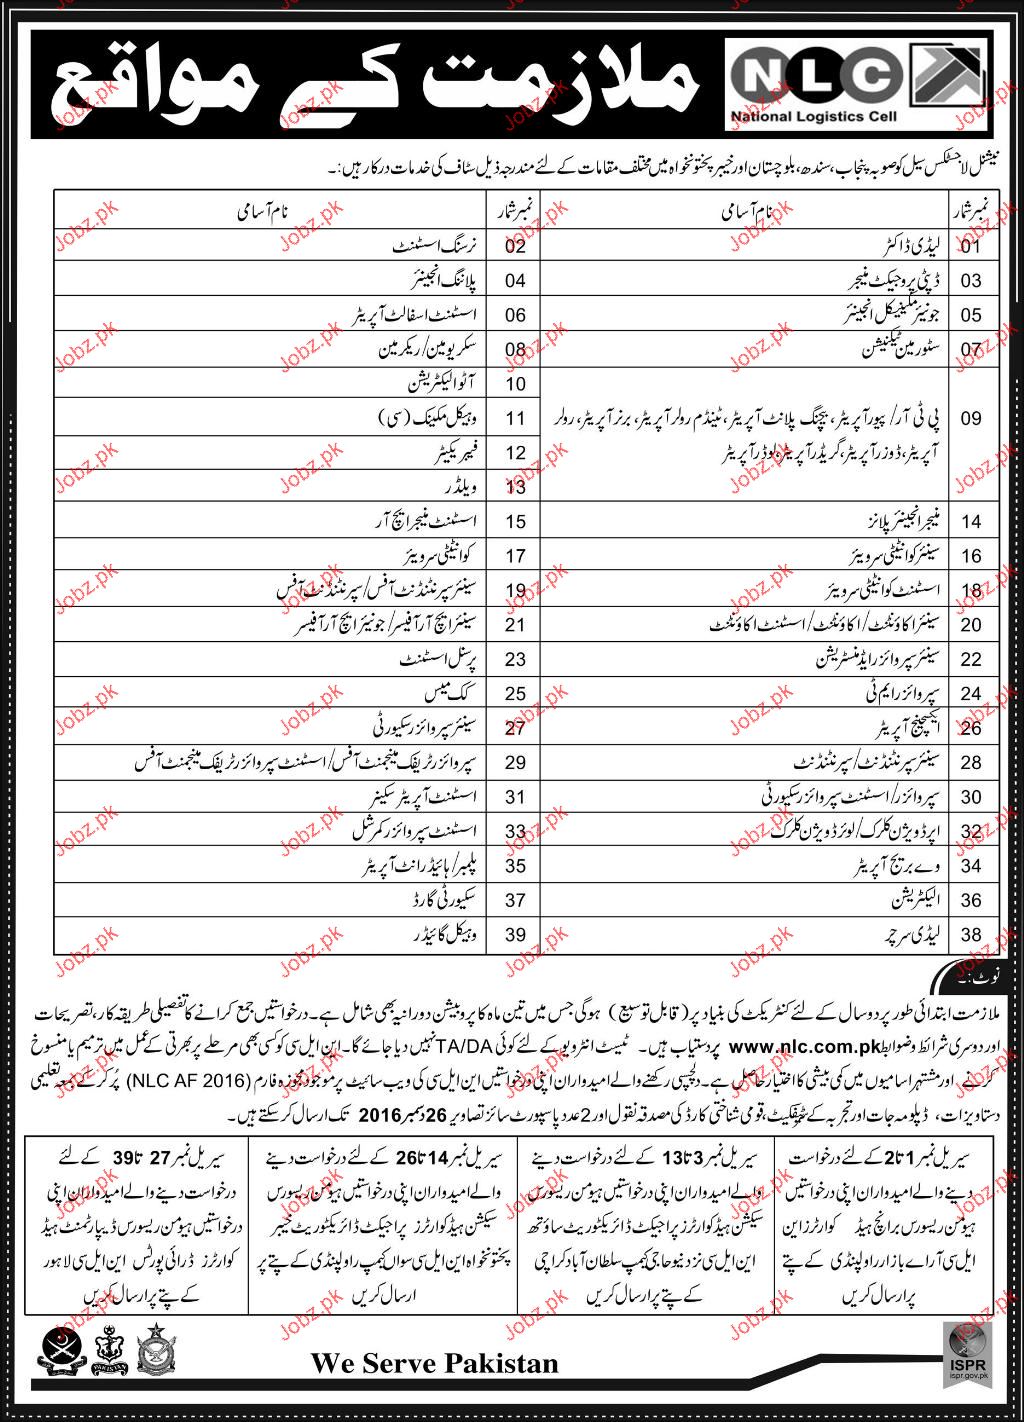 ملازمت کے مواقع
NLC
National Logistics Cell
نیشنل لاجسٹکس سیل کو صوبہ پنجاب، سندھ، بلوچستان اور خیبر پختونخواہ میں مختلف مقامات کے لئے مندرجہ ذیل سٹاف کی خدمات درکار ہیں:۔
نمبر شمار نام آسامی نمبر شمار نام آسامی
01 لیڈی ڈاکٹر 02 نرسنگ اسسٹنٹ
03 ڈپٹی پروجیکٹ منیجر 04 پلاننگ انجینئر
05 جونیئر مکینیکل انجینئر 06 اسسٹنٹ اسفالٹ آپریٹر
07 سٹورمین ٹیکنیشن 08 سکریومین/ریکرمین
09 پی ٹی آر/ پیور آپریٹر، بیچنگ پلانٹ آپریٹر، ٹینڈم رولر آپریٹر، برنر آپریٹر، رولر
آپریٹر، ڈوزر آپریٹر، گریڈر آپریٹر، لوڈر آپریٹر
10 آٹو الیکٹریشن
11 وہیکل مکینک (سی)
12 فیبریکیٹر
13 ویلڈر
14 منیجر انجینئر پلانز 15 اسسٹنٹ منیجر ایچ آر
16 سینئر کوانٹیٹی سرویئر 17 کوانٹیٹی سرویئر
18 اسسٹنٹ کوانٹیٹی سرویئر 19 سینئر سپرنٹنڈنٹ آفس/سپرنٹنڈنٹ آفس
20 سینئر اکاؤنٹنٹ/اکاؤنٹنٹ/اسسٹنٹ اکاؤنٹنٹ 21 سینئر ایچ آر آفیسر/جونیئر ایچ آر آفیسر
22 سینئر سپروائزر ایڈمنسٹریشن 23 پرسنل اسسٹنٹ
24 سپروائزر ایم ٹی 25 کک میس
26 ایکسچینج آپریٹر 27 سینئر سپروائزر سکیورٹی
28 سینئر سپرنٹنڈنٹ/سپرنٹنڈنٹ 29 سپروائزر ٹریفک مینجمنٹ آفس/اسسٹنٹ سپروائزر ٹریفک مینجمنٹ آفس
30 سپروائزر/اسسٹنٹ سپروائزر سکیورٹی 31 اسسٹنٹ آپریٹر سکینر
32 اپر ڈویژن کلرک/لوئر ڈویژن کلرک 33 اسسٹنٹ سپروائزر کمرشل
34 وے بریج آپریٹر 35 پلمبر/ہائیڈرانٹ آپریٹر
36 الیکٹریشن 37 سکیورٹی گارڈ
38 لیڈی سرچر 39 وہیکل گائیڈر
نوٹ:۔
ملازمت ابتدائی طور پر دو سال کے لئے کنٹریکٹ کی بنیاد پر (قابل توسیع) ہوگی جس میں تین ماہ کا پروبیشن دورانیہ بھی شامل ہے۔ درخواستیں جمع کرانے کا تفصیلی طریقہ کار، تصریحات
اور دوسری شرائط و ضوابط www.nlc.com.pk پر دستیاب ہیں۔ ٹیسٹ انٹرویو کے لئے کوئی TA/DA نہیں دیا جائے گا۔ این ایل سی کو کسی بھی مرحلے پر بھرتی کے عمل میں ترمیم یا منسوخ
کرنے اور مشتہر اسامیوں میں کمی بیشی کا اختیار حاصل ہے۔ دلچسپی رکھنے والے امیدواران اپنی درخواستیں این ایل سی کی ویب سائیٹ پر موجود مجوزہ فارم (NLC AF 2016) پُر کرکے بمعہ تعلیمی
دستاویزات، ڈپلومہ جات اور تجربہ کے سٹیفکیٹ، قومی شناختی کارڈ کی مصدقہ نقول اور 2 عدد پاسپورٹ سائز تصاویر 26 دسمبر 2016 تک ارسال کرسکتے ہیں۔
سیریل نمبر 1 تا 2 کے لئے درخواست
دینے والے امیدواران اپنی درخواستیں
ہیومن ریسورس برانچ ہیڈ کوارٹرز این
ایل سی آر اے بازار راولپنڈی کے پتے
پر ارسال کریں
سیریل نمبر 3 تا 13 کے لئے درخواست دینے
والے امیدواران اپنی درخواستیں ہیومن ریسورس
سیکشن ہیڈ کوارٹرز پراجیکٹ ڈائریکٹوریٹ ساؤتھ
این ایل سی نزد نیو حاجی کیمپ سلطان آباد کراچی
کے پتے پر ارسال کریں
سیریل نمبر 14 تا 26 کے لئے درخواست دینے
والے امیدواران اپنی درخواستیں ہیومن ریسورس
سیکشن ہیڈ کوارٹرز پراجیکٹ ڈائریکٹوریٹ خیبر
پختونخواہ این ایل سی سواں کیمپ راولپنڈی کے پتے پر
ارسال کریں
سیریل نمبر 27 تا 39 کے لئے
درخواست دینے والے امیدواران اپنی
درخواستیں ہیومن ریسورس ڈیپارٹمنٹ ہیڈ
کوارٹرز ڈرائی پورٹس این ایل سی لاہور
کے پتے پر ارسال کریں
We Serve Pakistan
ISPR
ispr.gov.pk
Jobz.pk